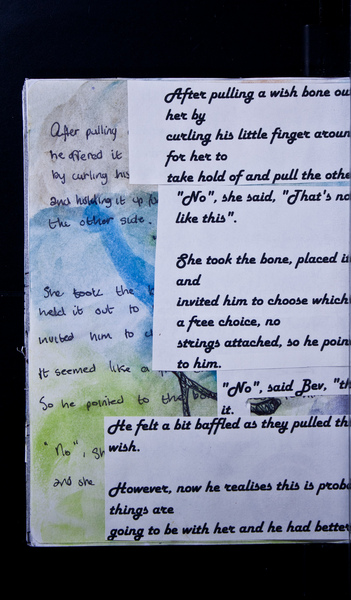 After pulling
he offered it
by curling his
and holding it up
the other side.
She took the
held it out to
invited him to
It seemed like a
So he pointed to the
"No", sh
and she
After pulling a wish bone ou
her by
curling his little finger aroun
for her to
take hold of and pull the othe
"No", she said, "That's no
like this".
She took the bone, placed i
and
invited him to choose which
a free choice, no
strings attached, so he poin
to him.
"No", said Bev, "th
it.
He felt a bit baffled as they pulled th
wish.
However, now he realises this is prob
things are
going to be with her and he had better